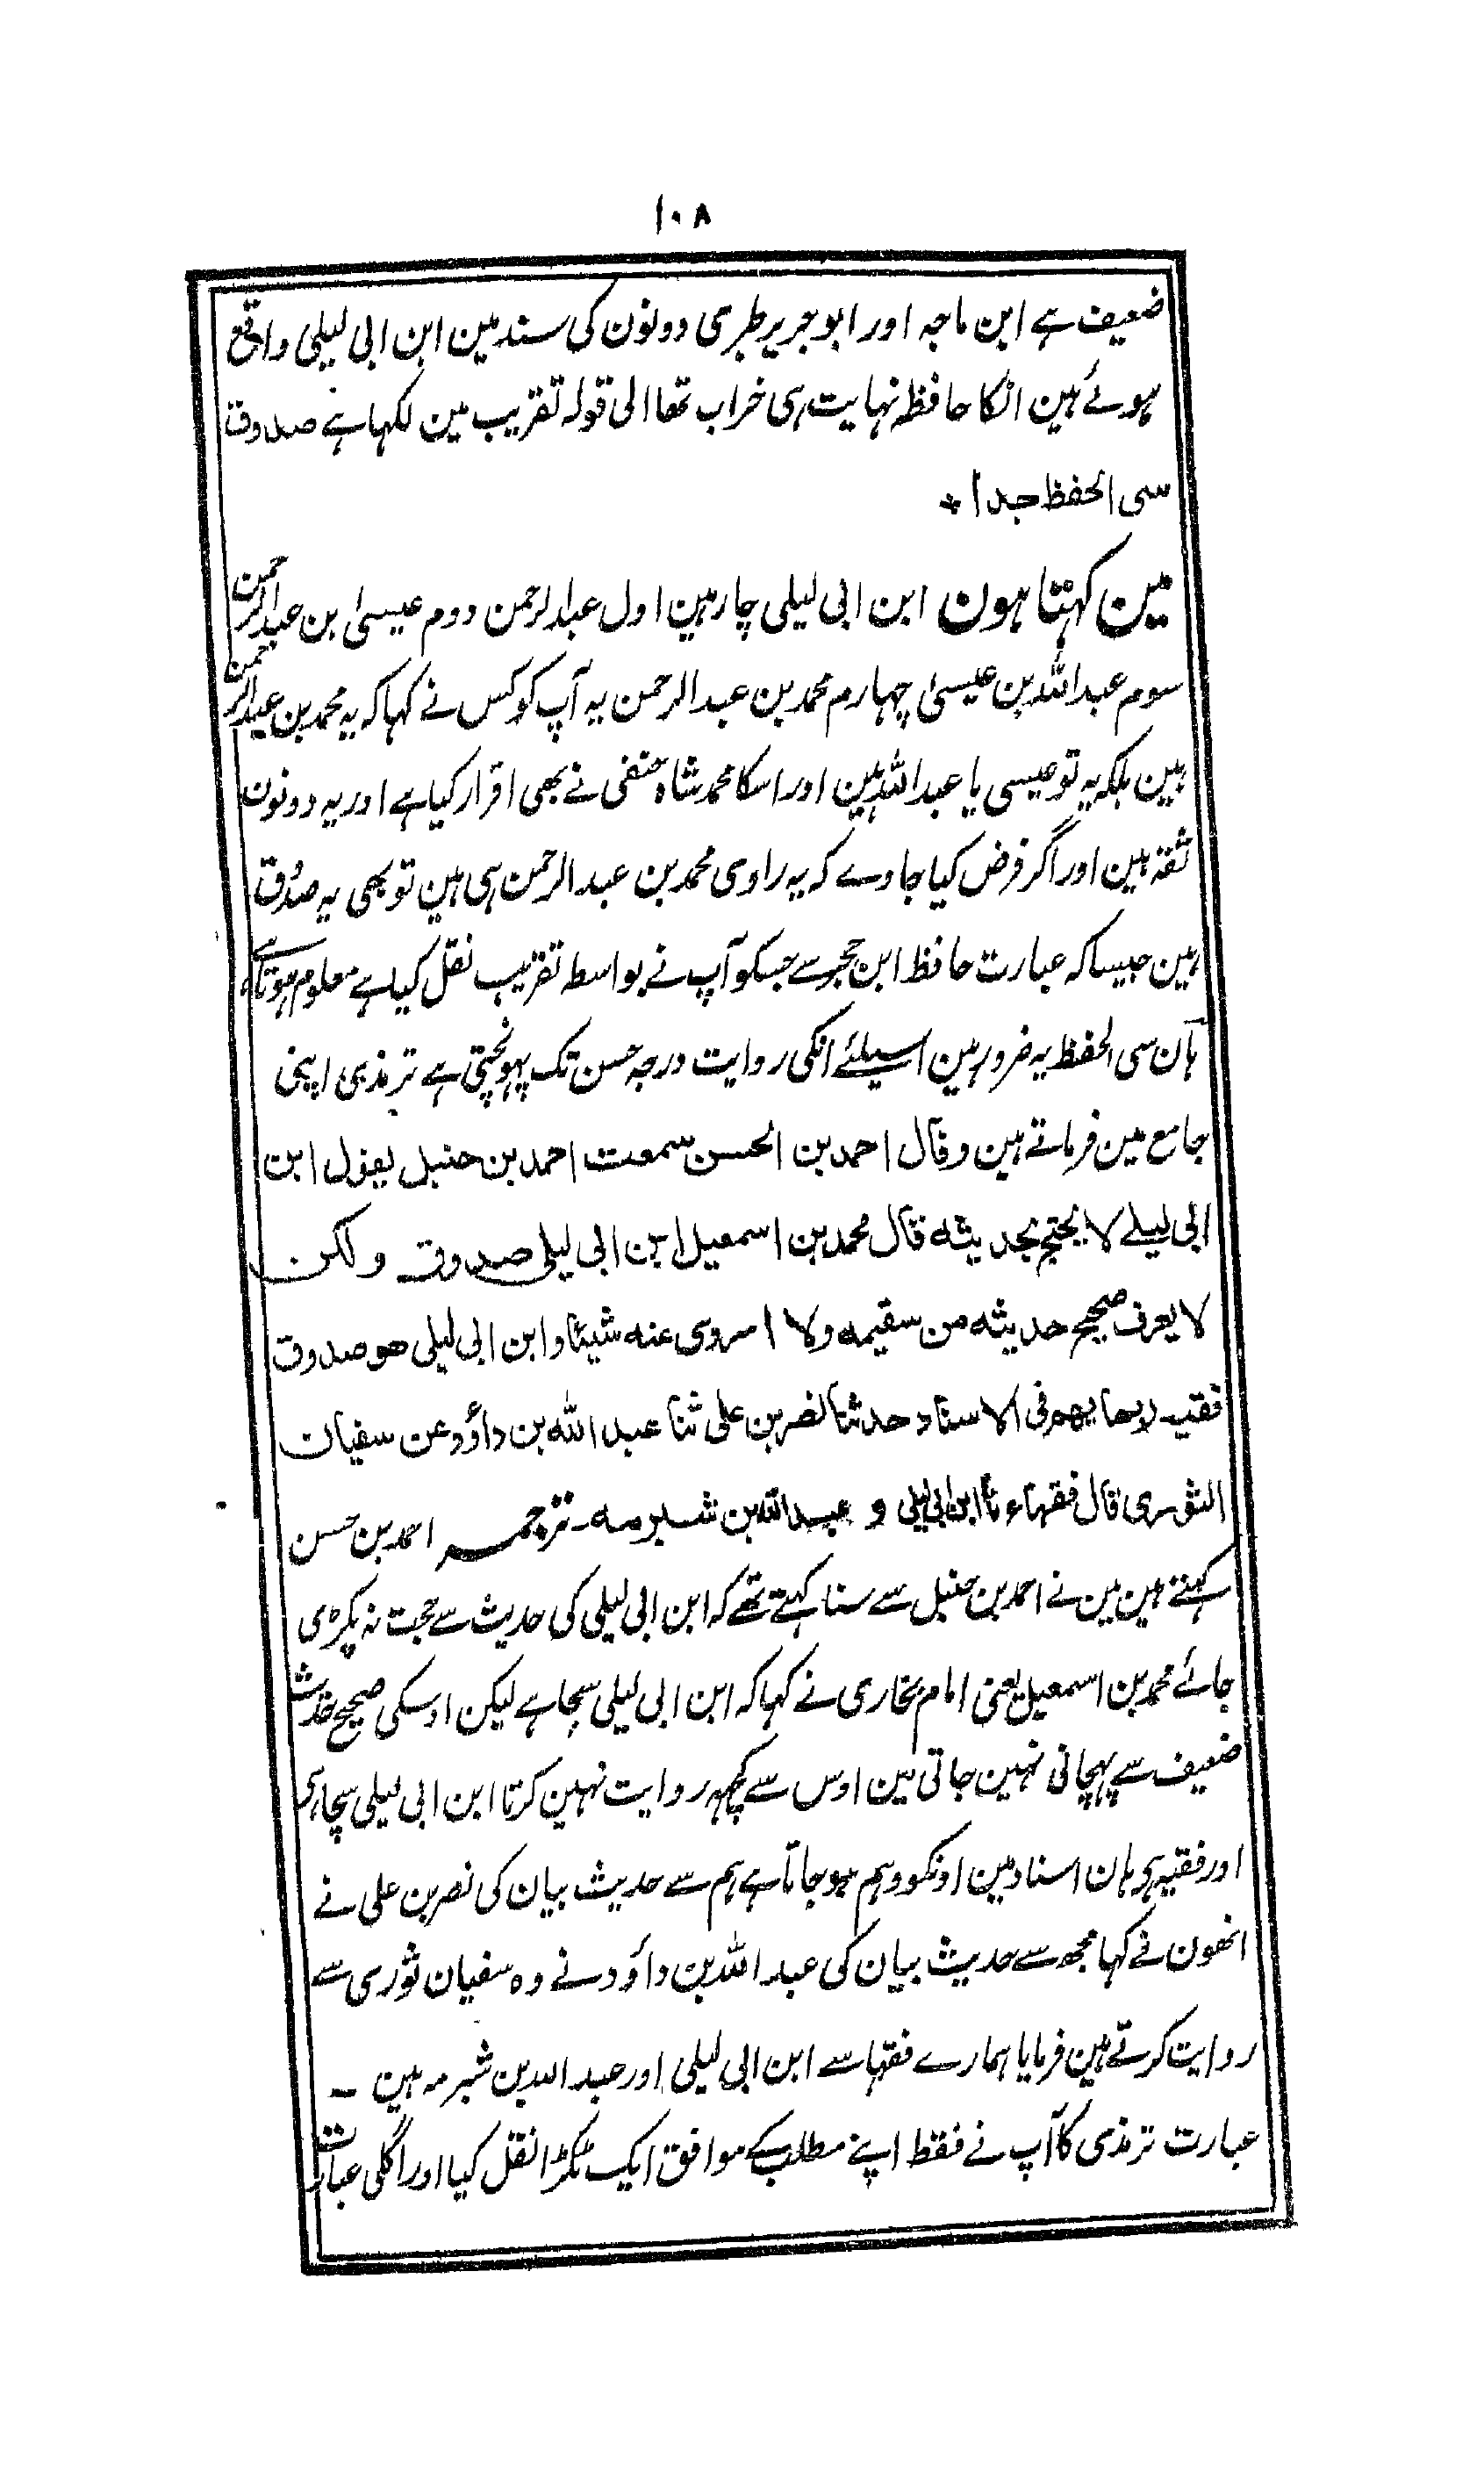 ۱۰۸
ضعیف ہے ابن ماجہ اور ابو جریر طبری دونون کی سند مین ابن ابی لیلی واقع
ہوئے ہین انکا حافظہ نہایت ہی خراب تھا الی قولہ تقریب مین لکھا ہے صدوق
سی الحفظ جدا *
مین کہتا ہون ابن ابی لیلی چار ہین اول عبدالرحمن دوم عیسیٰ بن عبدالرحمن
سوم عبداللہ بن عیسیٰ چہارم محمد بن عبدالرحمن یہ آپ کو کس نے کہا کہ یہ محمد بن عبدالرحمن
ہین بلکہ یہ تو عیسی یا عبداللہ ہین اور اسکا محمد شاہ حنفی نے بھی اقرار کیا ہے اور یہ دونون
ثقہ ہین اور اگر فرض کیا جاوے کہ یہ راوی محمد بن عبدالرحمن ہی ہین تو بھی یہ صدوق
ہین جیسا کہ عبارت حافظ ابن حجر سے جسکو آپ نے بواسطہ تقریب نقل کیا ہے معلوم ہوتا ہے
ہان سی الحفظ یہ ضرور ہین اسیلئے انکی روایت درجہ حسن تک پہونچتی ہے ترمذی اپنی
جامع مین فرماتے ہین وقال احمد بن الحسن سمعت احمد بن حنبل یقول ابن
ابی لیلے لا یحتج بحدیثہ قال محمد بن اسمعیل ابن ابی لیلی صدوق ولکن
لا یعرف صحیح حدیثہ من سقیمہ ولا اروی عنہ شیئا وابن ابی لیلی ھو صدوق
فقیہ ربما یھم فی الاسناد حدثنا نصر بن علی ثنا عبد اللہ بن داؤد عن سفیان
الثوری قال فقھاءنا ابن ابی لیلی و عبداللہ بن شبرمہ۔ ترجمہ احمد بن حسن
کہتے ہین مین نے احمد بن حنبل سے سنا کہتے تھے کہ ابن ابی لیلی کی حدیث سے حجت نہ پکڑی
جائے محمد بن اسمعیل یعنی امام بخاری نے کہا کہ ابن ابی لیلی سچا ہے لیکن اوسکی صحیح حدیث
ضعیف سے پہچانی نہین جاتی مین اوس سے کچھہ روایت نہین کرتا ابن ابی لیلی سچا ہے
اور فقیہ ہی ہان اسناد مین اونکو وہم ہو جاتا ہے ہم سے حدیث بیان کی نصر بن علی نے
انھون نے کہا مجھ سے حدیث بیان کی عبد اللہ بن داؤد نے وہ سفیان ثوری سے
روایت کرتے ہین فرمایا ہمارے فقہا سے ابن ابی لیلی اور عبد اللہ بن شبرمہ ہین ۔
عبارت ترمذی کا آپ نے فقط اپنے مطلب کے موافق ایک ٹکڑا نقل کیا اور اگلی عبارت